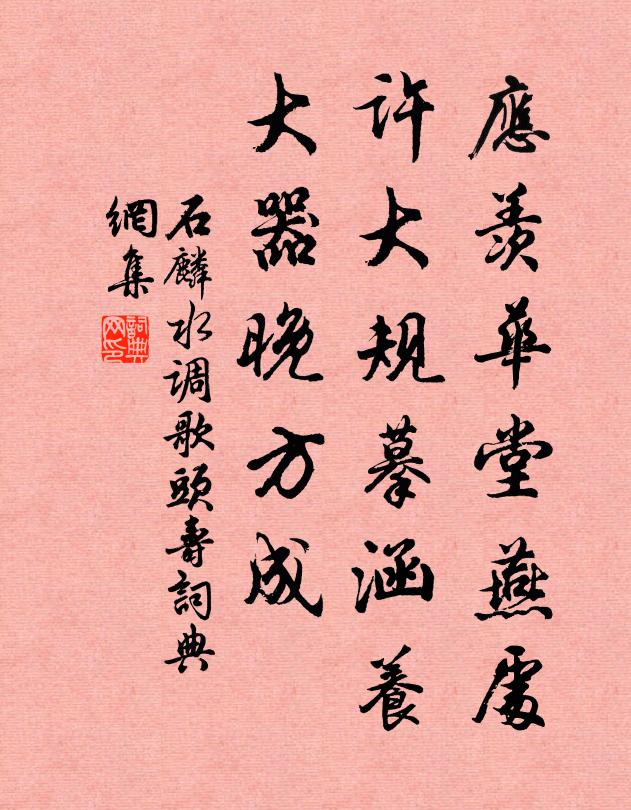 應羨華堂燕處
许大規摹涵養
大器晚方成
石麟水调歌头壽詞典
網集
詞典网印